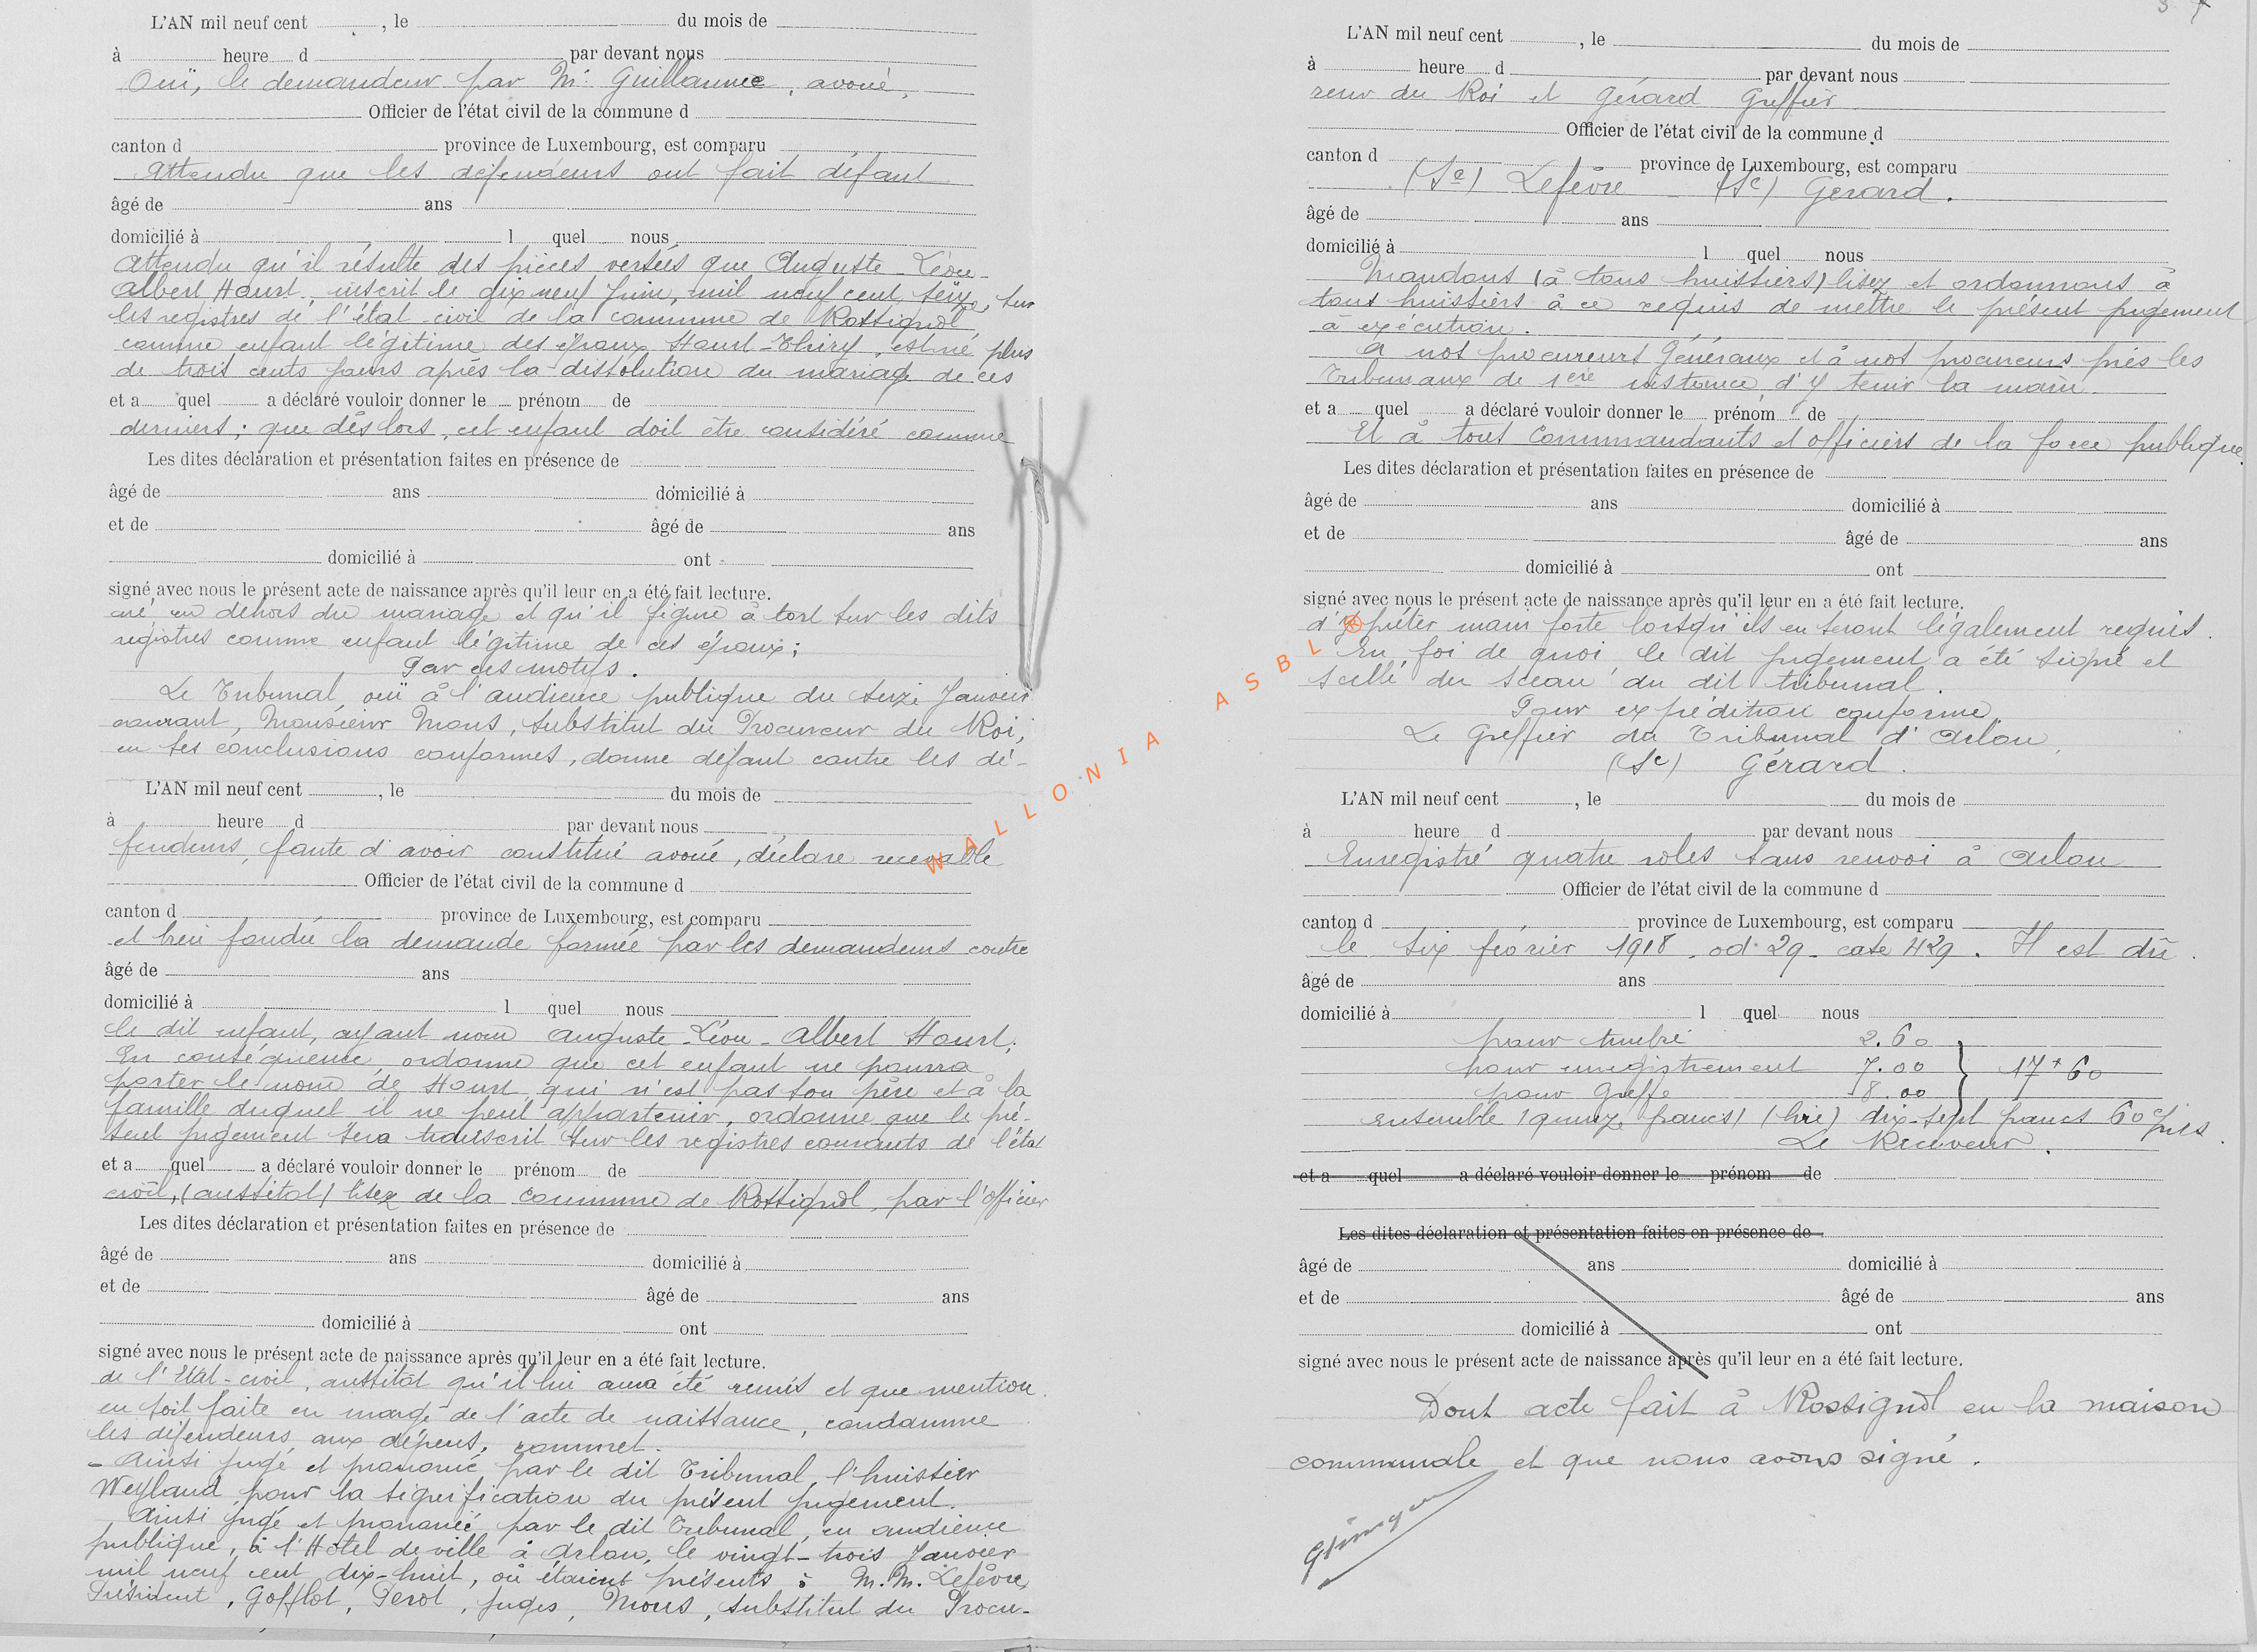 L'AN mil neuf cent , le du mois de
à heure d par devant nous
Ouï, le demandeur par Me Guillaume, avoué,
Officier de l'état civil de la commune d
canton d province de Luxembourg, est comparu
Attendu que les défendeurs ont fait défaut
âgé de ans
domicilié à l quel nous
Attendu qu'il résulte des pièces versées que Auguste-Léon-
Albert Hourt, inscrit le dix neuf juin, mil neuf cent seize, sur
les registres de l'état-civil de la commune de Rossignol
comme enfant légitime des époux Hourt-Thiry, est né plus
de trois cents jours après la dissolution du mariage de ces
et a quel a déclaré vouloir donner le prénom de
derniers; que dès lors, cet enfant doit être considéré comme
Les dites déclaration et présentation faites en présence de
âgé de ans domicilié à
et de âgé de ans
domicilié à ont
signé avec nous le présent acte de naissance après qu'il leur en a été fait lecture.
né en dehors du mariage et qu'il figure à tort sur les dits
registres comme enfant légitime de ces époux;
Par ces motifs.
Le Tribunal, ouï à l'audience publique du seize Janvier
courant, Monsieur Mons, substitut du Procureur du Roi,
en ses conclusions conformes, donne défaut contre les dé-
L'AN mil neuf cent , le du mois de
à heure d par devant nous
fendeurs, faute d'avoir constitué avoué, déclare recevable
Officier de l'état civil de la commune d
canton d province de Luxembourg, est comparu
et bien fondée la demande formée par les demandeurs contre
âgé de ans
domicilié à l quel nous
le dit enfant, ayant nom Auguste-Léon-Albert Hourt;
En conséquence, ordonne que cet enfant ne pourra
porter le nom de Hourt, qui n'est pas son père et à la
famille duquel il ne peut appartenir, ordonne que le pré-
sent jugement sera transcrit sur les registres courants de l'état
et a quel a déclaré vouloir donner le prénom de
civil, (aussitôt) lisez de la commune de Rossignol, par l'officier
Les dites déclaration et présentation faites en présence de
âgé de ans domicilié à
et de âgé de ans
domicilié à ont
signé avec nous le présent acte de naissance après qu'il leur en a été fait lecture.
de l'Etat-civil, aussitôt qu'il lui aura été remis et que mention
en soit faite en marge de l'acte de naissance, condamne
les défendeurs aux dépens, commet.
- Ainsi jugé et prononcé par le dit Tribunal, l'huissier
Weyland pour la signification du présent jugement.
Ainsi jugé et prononcé par le dit Tribunal, en audience
publique, à l'Hôtel de ville à Arlon, le vingt-trois Janvier
mil neuf cent dix-huit, où étaient présents : M.M. Lefèvre,
Président, Gofflot, Perot, juges, Mons, substitut du Procu-
L'AN mil neuf cent , le du mois de
à heure d par devant nous
reur du Roi et Gérard Greffier
Officier de l'état civil de la commune d
canton d province de Luxembourg, est comparu
(Sé) Lefèvre (Sé) Gérard.
âgé de ans
domicilié à l quel nous
Mandons (à tous huissiers) lisez et ordonnons à
tous huissiers à ce requis de mettre le présent jugement
à exécution.
A nos procureurs Généraux et à nos procureurs près les
Tribunaux de 1ère instance, d'y tenir la main.
et a quel a déclaré vouloir donner le prénom de
Et à tous Commandants et officiers de la force publique.
Les dites déclaration et présentation faites en présence de
âgé de ans domicilié à
et de âgé de ans
domicilié à ont
signé avec nous le présent acte de naissance après qu'il leur en a été fait lecture.
d'y prêter main forte lorsqu'ils en seront légalement requis.
En foi de quoi, le dit jugement a été signé et
scellé du sceau du dit tribunal.
Pour expédition conforme,
Le Greffier du Tribunal d'Arlon,
(Sé) Gérard.
L'AN mil neuf cent , le du mois de
à heure d par devant nous
Enregistré quatre rôles sans renvoi à Arlon
Officier de l'état civil de la commune d
canton d province de Luxembourg, est comparu
le six février 1918. od. 29. case 429. Il est dû
âgé de ans
domicilié à l quel nous
pour timbre 2.60
pour enregistrement 7.00 17f60
pour Greffe 8.00
Ensemble (quinze francs) (lire) dix-sept francs 60
Le Receveur.
et a quel a déclaré vouloir donner le prénom de
Les dites déclaration et présentation faites en présence de
âgé de ans domicilié à
et de âgé de ans
domicilié à ont
signé avec nous le présent acte de naissance après qu'il leur en a été fait lecture.
Dont acte fait à Rossignol en la maison
communale et que nous avons signé.
WALLONIA ASBL ®